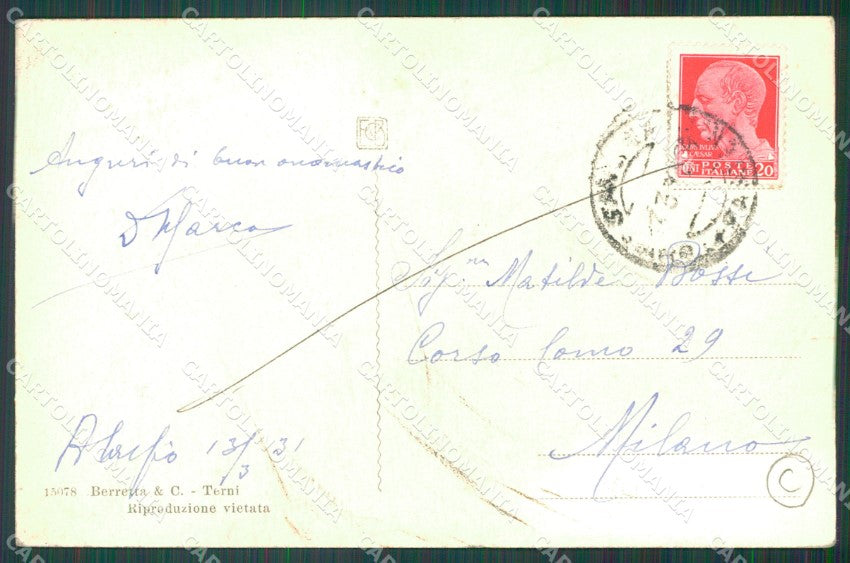 Auguri di buon onomastico
D Marco
Alassio 13/3 31
15078 Berretta & C. - Terni
Riproduzione vietata
JULIUS
CAESAR
POSTE
ITALIANE 20
Sig.na Matilde Bossi
Corso Como 29
Milano
C
CARTOLINOMANIA